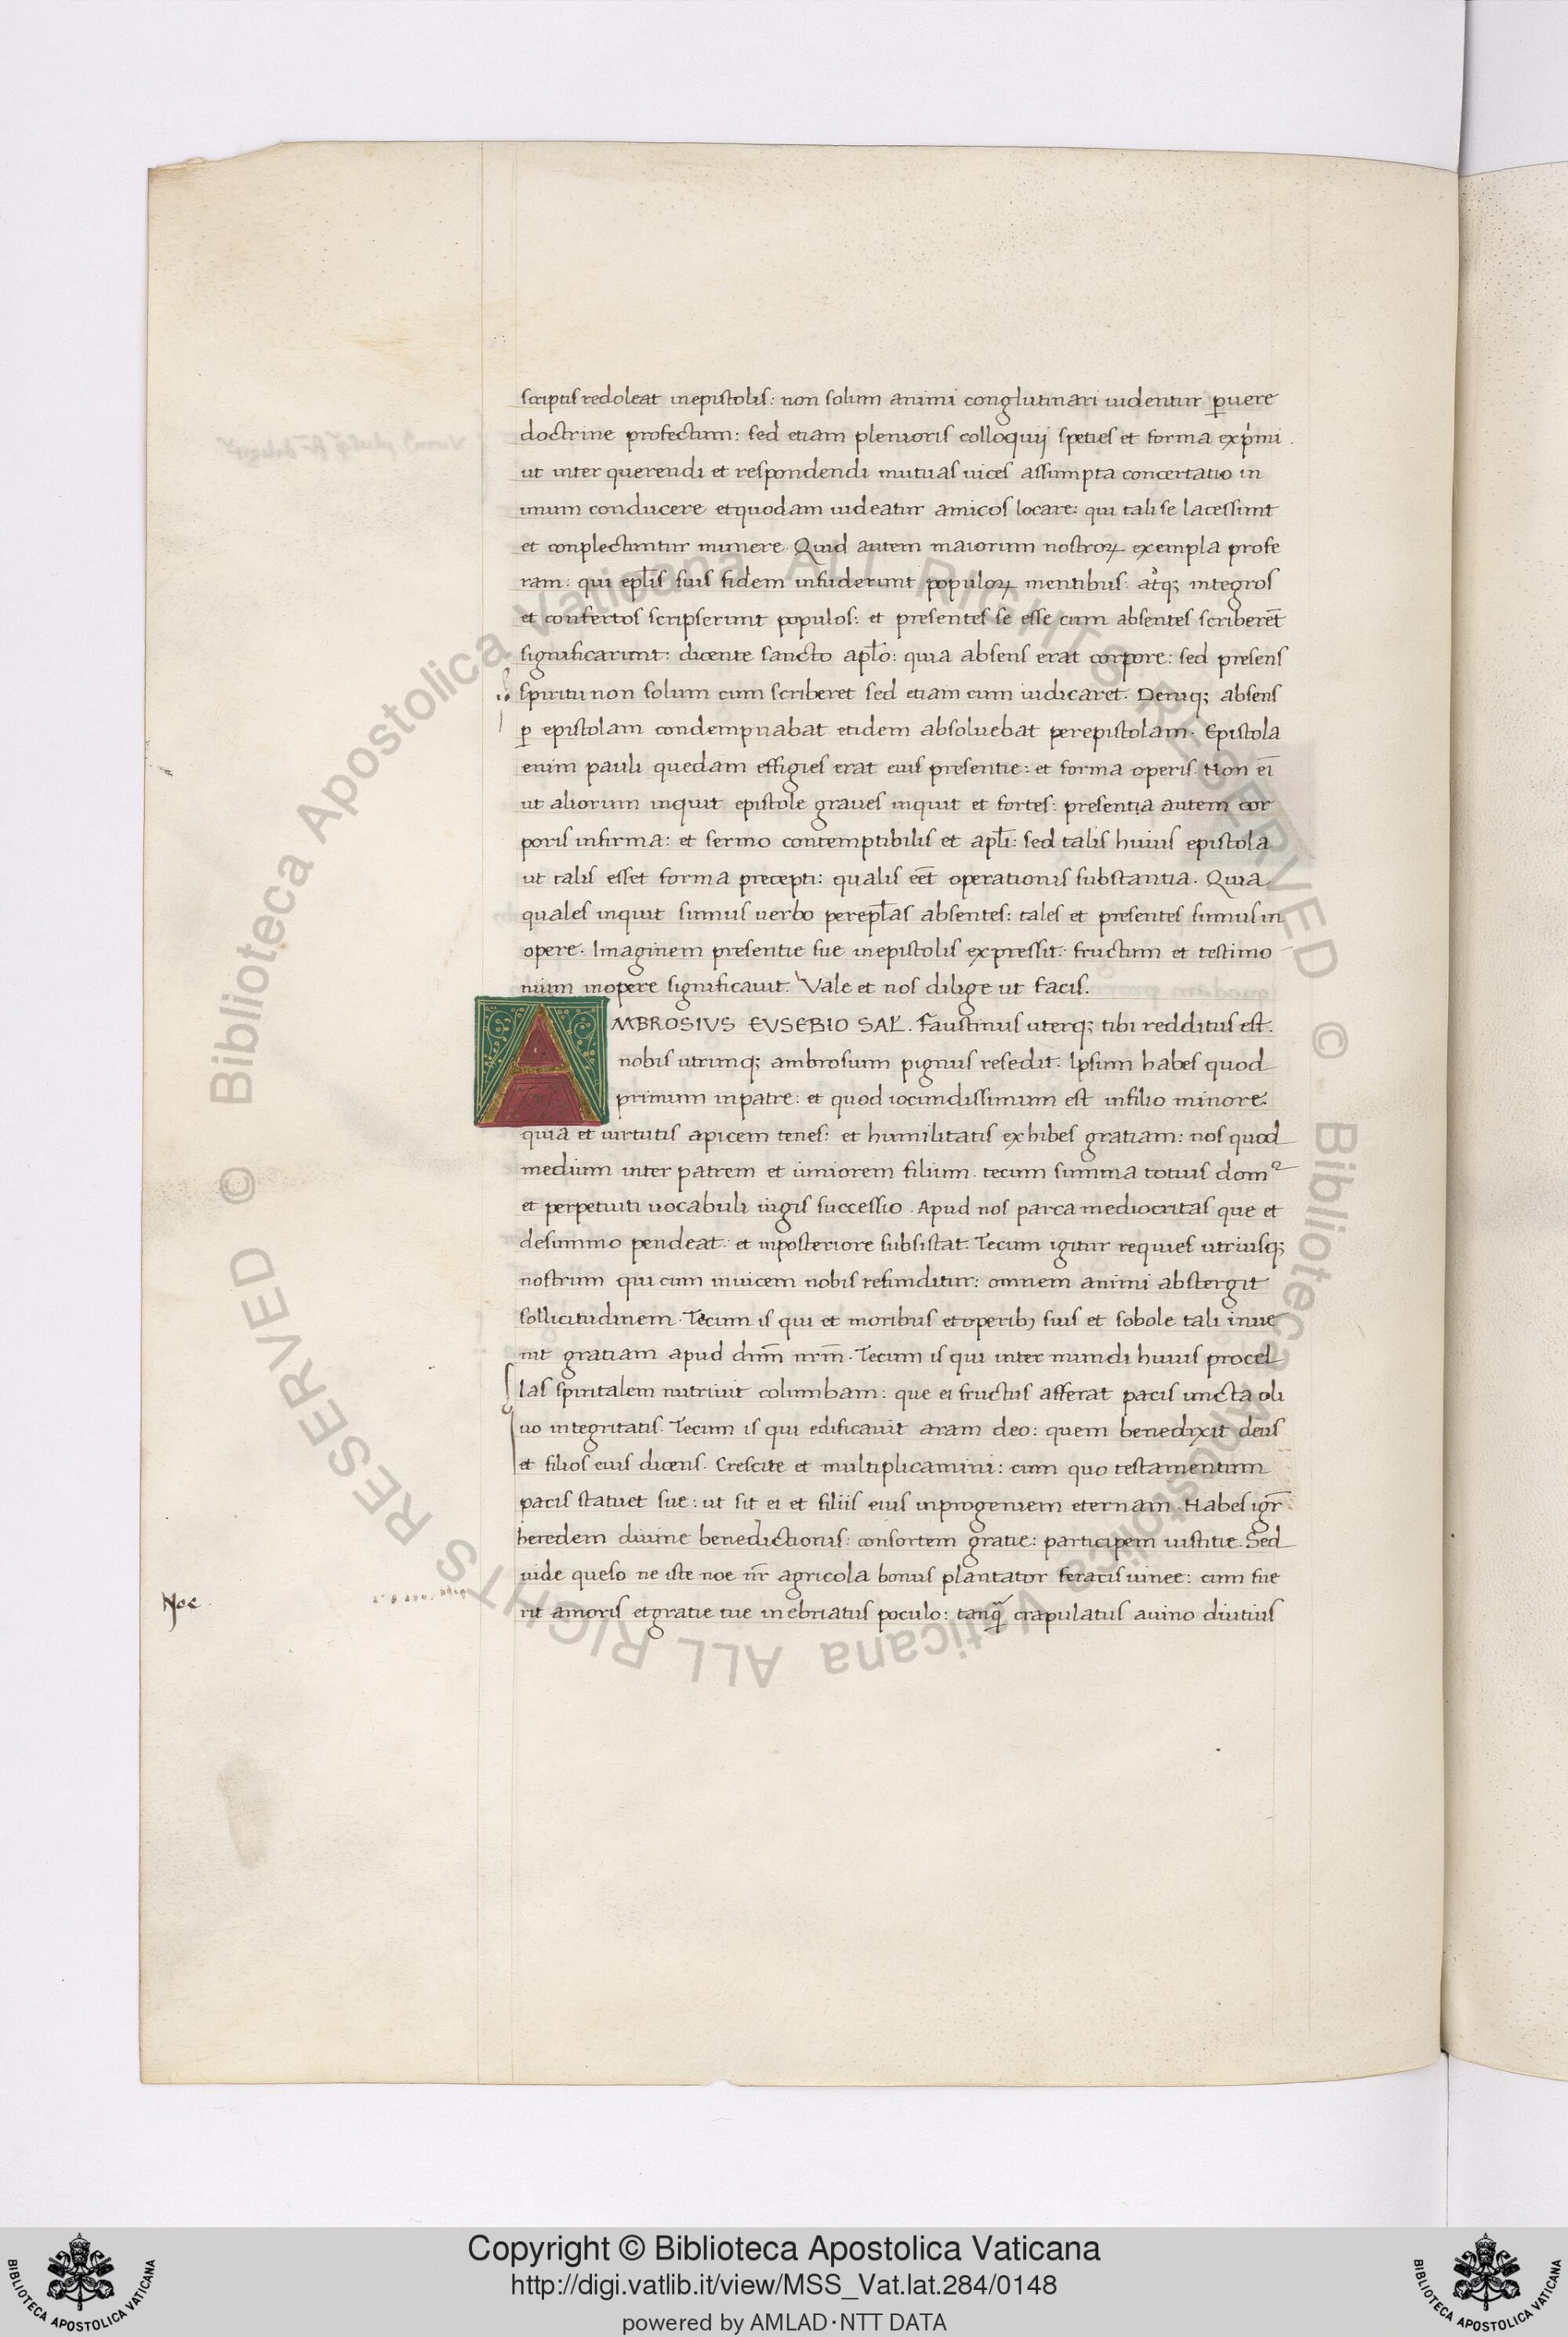 scriptis redoleat in epistolis: non solum animi conglutinari uidentur ꝑ uere
doctrine profectum: sed etiam plenioris colloquij speties et forma exp̍mi.
ut inter querendi et respondendi mutuas uices assumpta concertatio in
unum conducere et quodam uideatur amicos locare: qui tali se lacessunt
et conplectuntur munere. Quid autem maiorum nostroꝝ exempla profe
ram: qui ep̅lis suis fidem infuderunt populoꝝ mentibus: atq; integros
et confertos scripserunt populos: et presentes se esse cum absentes scriberet̅
significarunt: dicente sancto ap̅lo: quia absens erat corpore: sed presens
spiritu non solum cum scriberet sed etiam cum iudicaret. Deniq; absens
ꝑ epistolam condempnabat etidem absoluebat per epistolam. Epistola
enim pauli quedam effigies erat eius presentie: et forma operis. Non ei̅
ut aliorum inquit epistole graues inquit et fortes: presentia autem cor
poris infirma: et sermo contemptibilis et ap̅li: sed talis huius epistola
ut talis esset forma precepti: qualis ee̅t operationis substantia. Quia
quales inquit sumus uerbo per ep̅las absentes: tales et presentes sumus in
opere. Imaginem presentie sue in epistolis expressit: fructum et testimo
nium in opere significauit. Vale et nos dilige ut facis.
AMBROSIVS EVSEBIO SAL̅. Faustinus uterq; tibi redditus est.
nobis utrunq; ambrosium pignus resedit. Ipsum habes quod
primum in patre: et quod iocundissimum est in filio minore:
quia et uirtutis apicem tenes: et humilitatis exhibes gratiam: nos quod
medium inter patrem et iuniorem filium. tecum summa totius dom9
et perpetuiti uocabuli iugis successio. Apud nos parca mediocritas que et
de summo pendeat: et in posteriore subsistat. Tecum igitur requies utriusq;
nostrum qui cum inuicem nobis refunditur: omnem animi abstergit
sollicitudinem. Tecum is qui et moribus et operibꝫ suis et sobole tali inue
nit gratiam apud dn̅m nr̅m. Tecum is qui inter mundi huius procel
las spiritalem nutriuit columbam: que ei fructus afferat pacis uncta oli
uo integritatis. Tecum is qui edificauit aram deo: quem benedixit deus
et filios eius dicens. Crescite et multiplicamini: cum quo testamentum
pacis statuet sue: ut sit ei et filiis eius in progeniem eternam. Habes igr̅
heredem diuine benedictionis: consortem gratie: participem iustitie. Sed
uide queso ne iste noe nr̅ agricola bonus plantator feracis uinee: cum fue
rit amoris et gratie tue inebriatus poculo: tanq̃ crapulatus a uino diutius
Noe
Biblioteca Apostolica Vaticana ALL RIGHTS RESERVED © Biblioteca Apostolica Vaticana ALL RIGHTS RESERVED ©
Copyright © Biblioteca Apostolica Vaticana
http://digi.vatlib.it/view/MSS_Vat.lat.284/0148
powered by AMLAD·NTT DATA
BIBLIOTECA APOSTOLICA VATICANA
BIBLIOTECA APOSTOLICA VATICANA